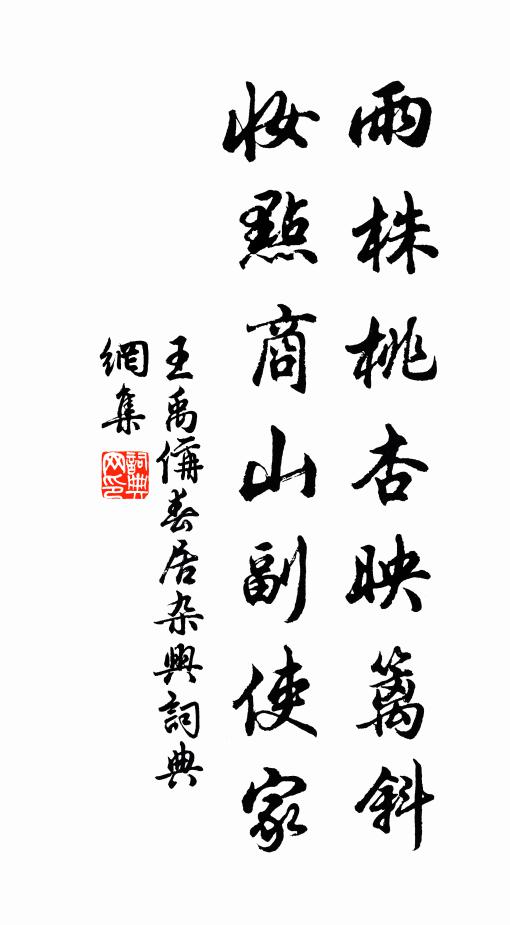 兩株桃杏映籬斜
妝點商山副使家
王禹偁春居杂興詞典
網集
詞典网印